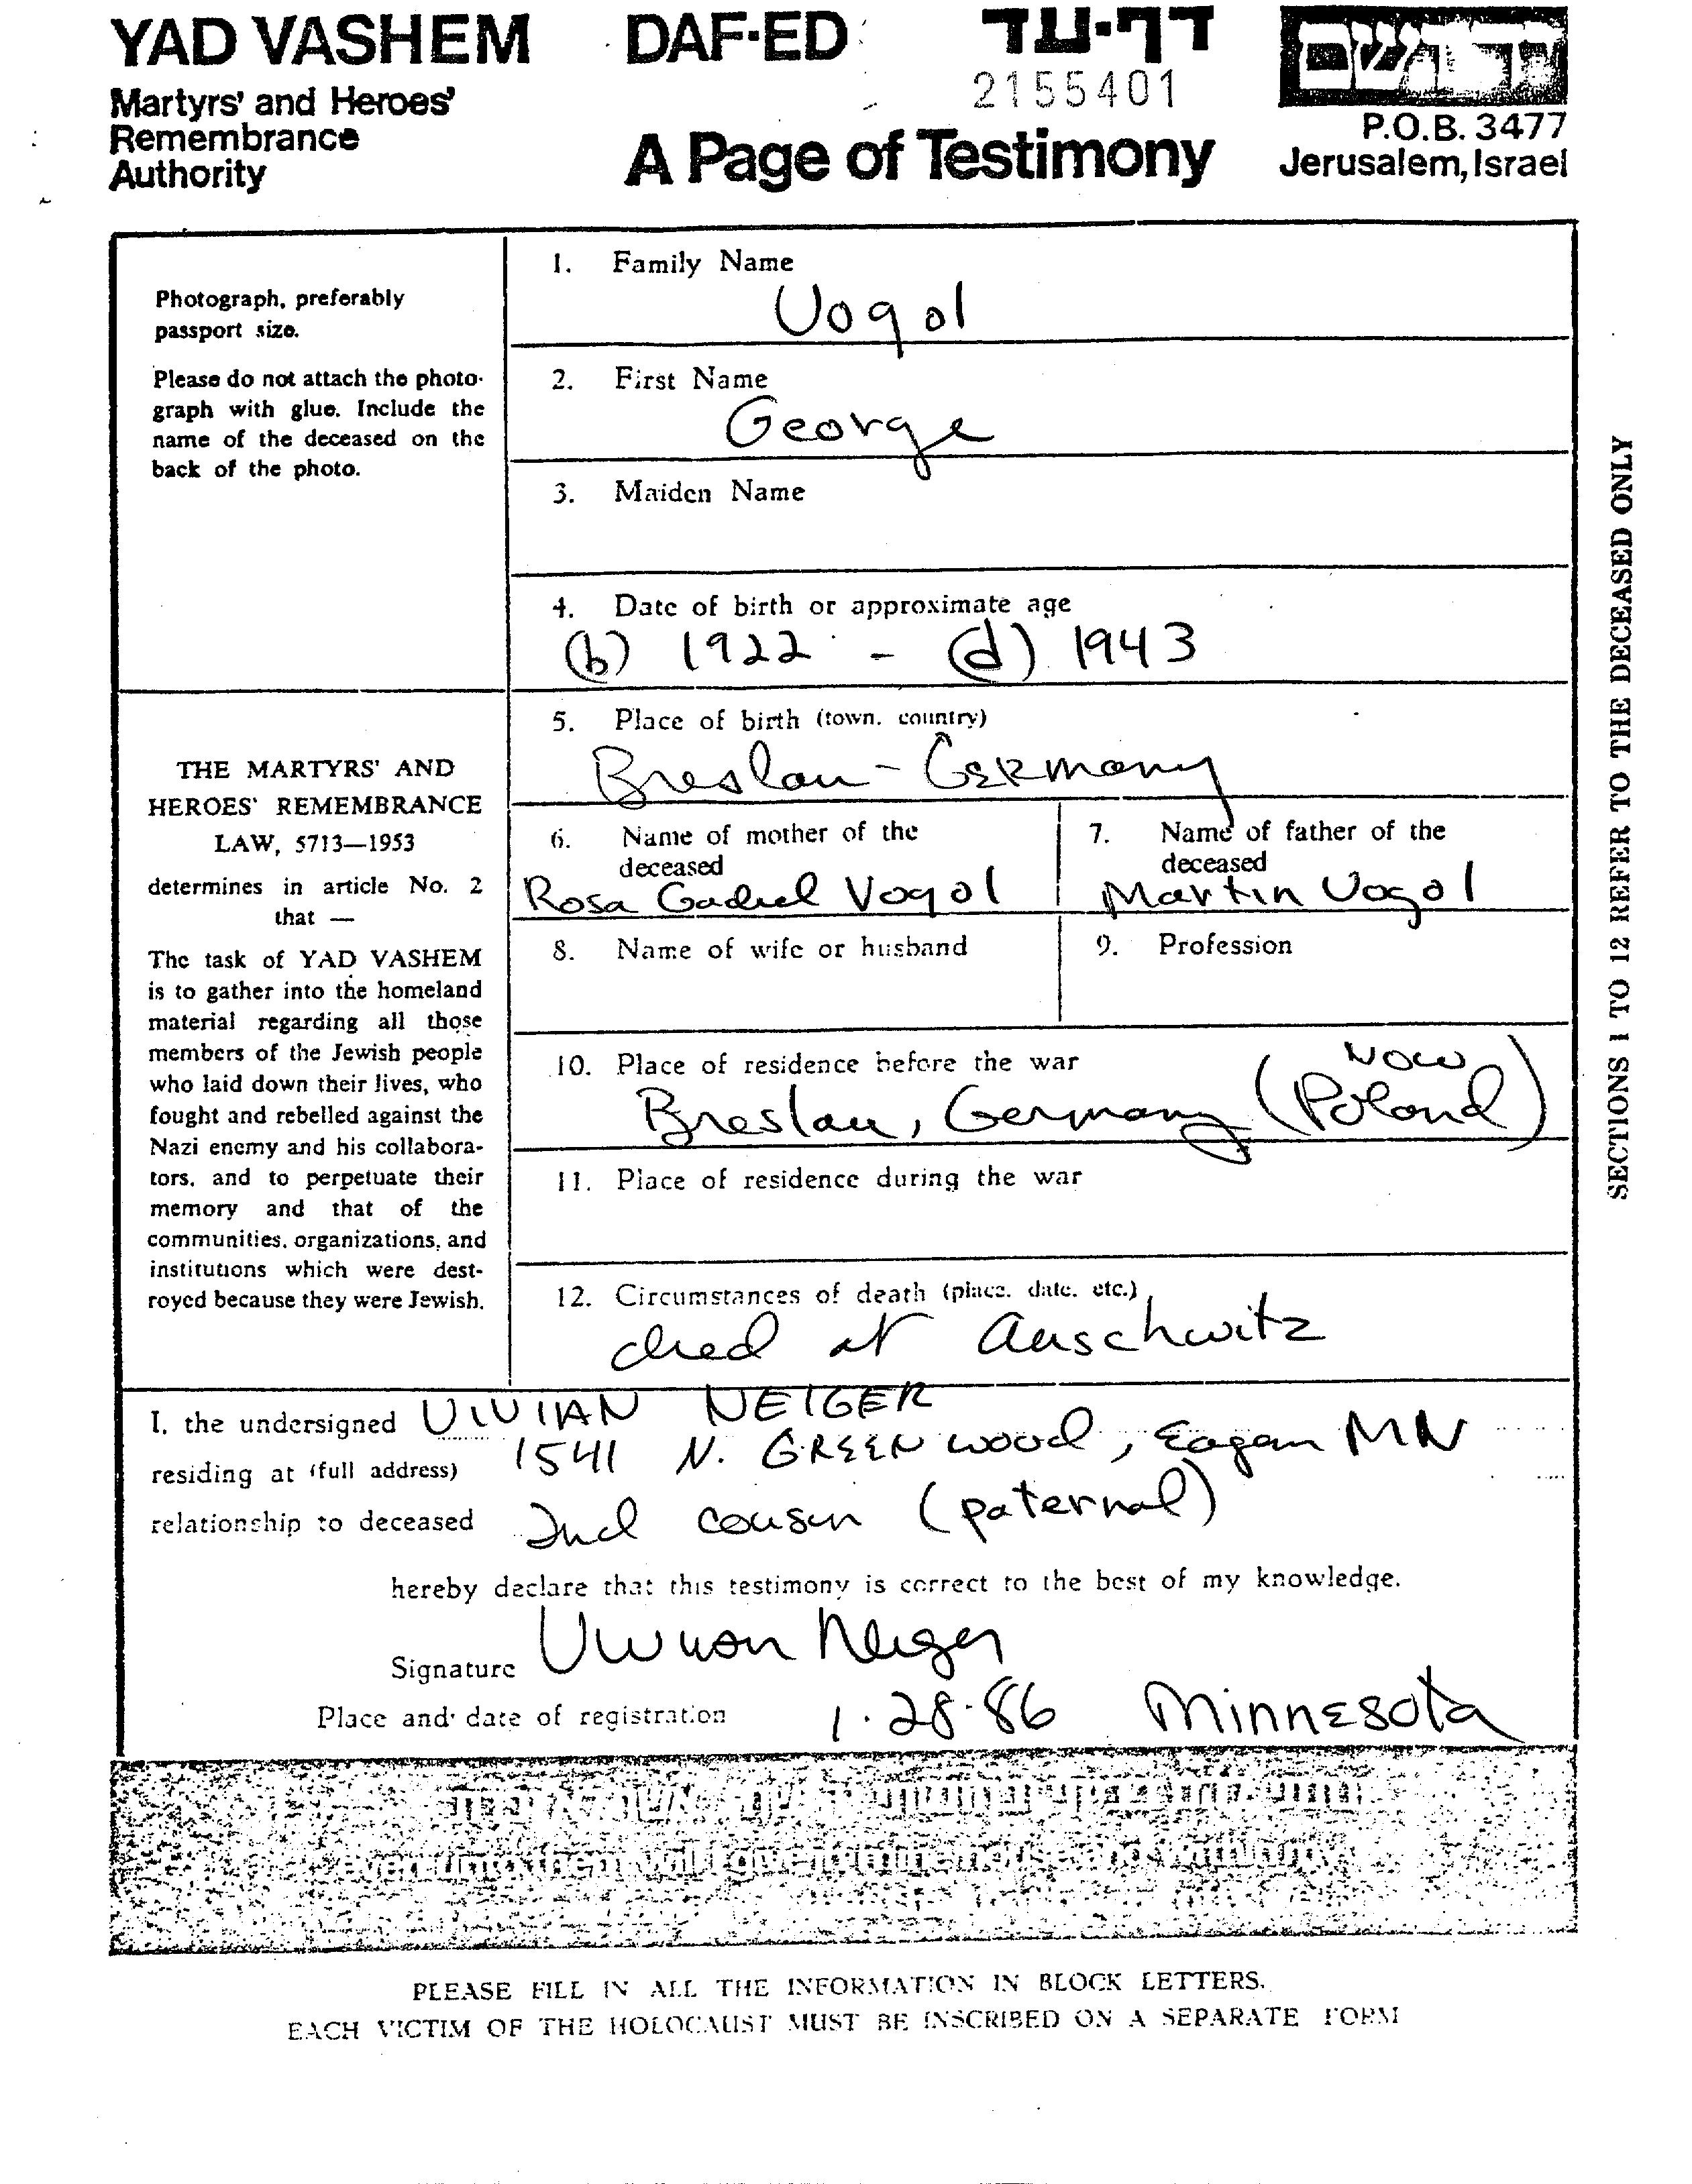 YAD VASHEM DAF-ED דף-עד
2155401
Martyrs' and Heroes'
Remembrance
Authority
A Page of Testimony
P.O.B. 3477
Jerusalem, Israel
Photograph, preferably
passport size.
Please do not attach the photo-
graph with glue. Include the
name of the deceased on the
back of the photo.
THE MARTYRS' AND
HEROES' REMEMBRANCE
LAW, 5713—1953
determines in article No. 2
that —
The task of YAD VASHEM
is to gather into the homeland
material regarding all those
members of the Jewish people
who laid down their lives, who
fought and rebelled against the
Nazi enemy and his collabora-
tors, and to perpetuate their
memory and that of the
communities, organizations, and
institutions which were dest-
royed because they were Jewish.
1. Family Name
Vogol
2. First Name
George
3. Maiden Name
4. Date of birth or approximate age
(b) 1922 - (d) 1943
5. Place of birth (town, country)
Breslau - Germany
6. Name of mother of the
deceased
Rosa Gadiel Vogol
7. Name of father of the
deceased
Martin Vogol
8. Name of wife or husband
9. Profession
10. Place of residence before the war
Breslau, Germany (Now Poland)
11. Place of residence during the war
12. Circumstances of death (place, date, etc.)
died at Auschwitz
SECTIONS 1 TO 12 REFER TO THE DECEASED ONLY
I, the undersigned VIVIAN NEIGER
residing at (full address) 1541 N. GREENwood, Eagan MN
relationship to deceased 2nd cousin (paternal)
hereby declare that this testimony is correct to the best of my knowledge.
Signature Vivian Neiger
Place and date of registration 1.28.86 Minnesota
even unto them will I give in mine house and within my
PLEASE FILL IN ALL THE INFORMATION IN BLOCK LETTERS.
EACH VICTIM OF THE HOLOCAUST MUST BE INSCRIBED ON A SEPARATE FORM